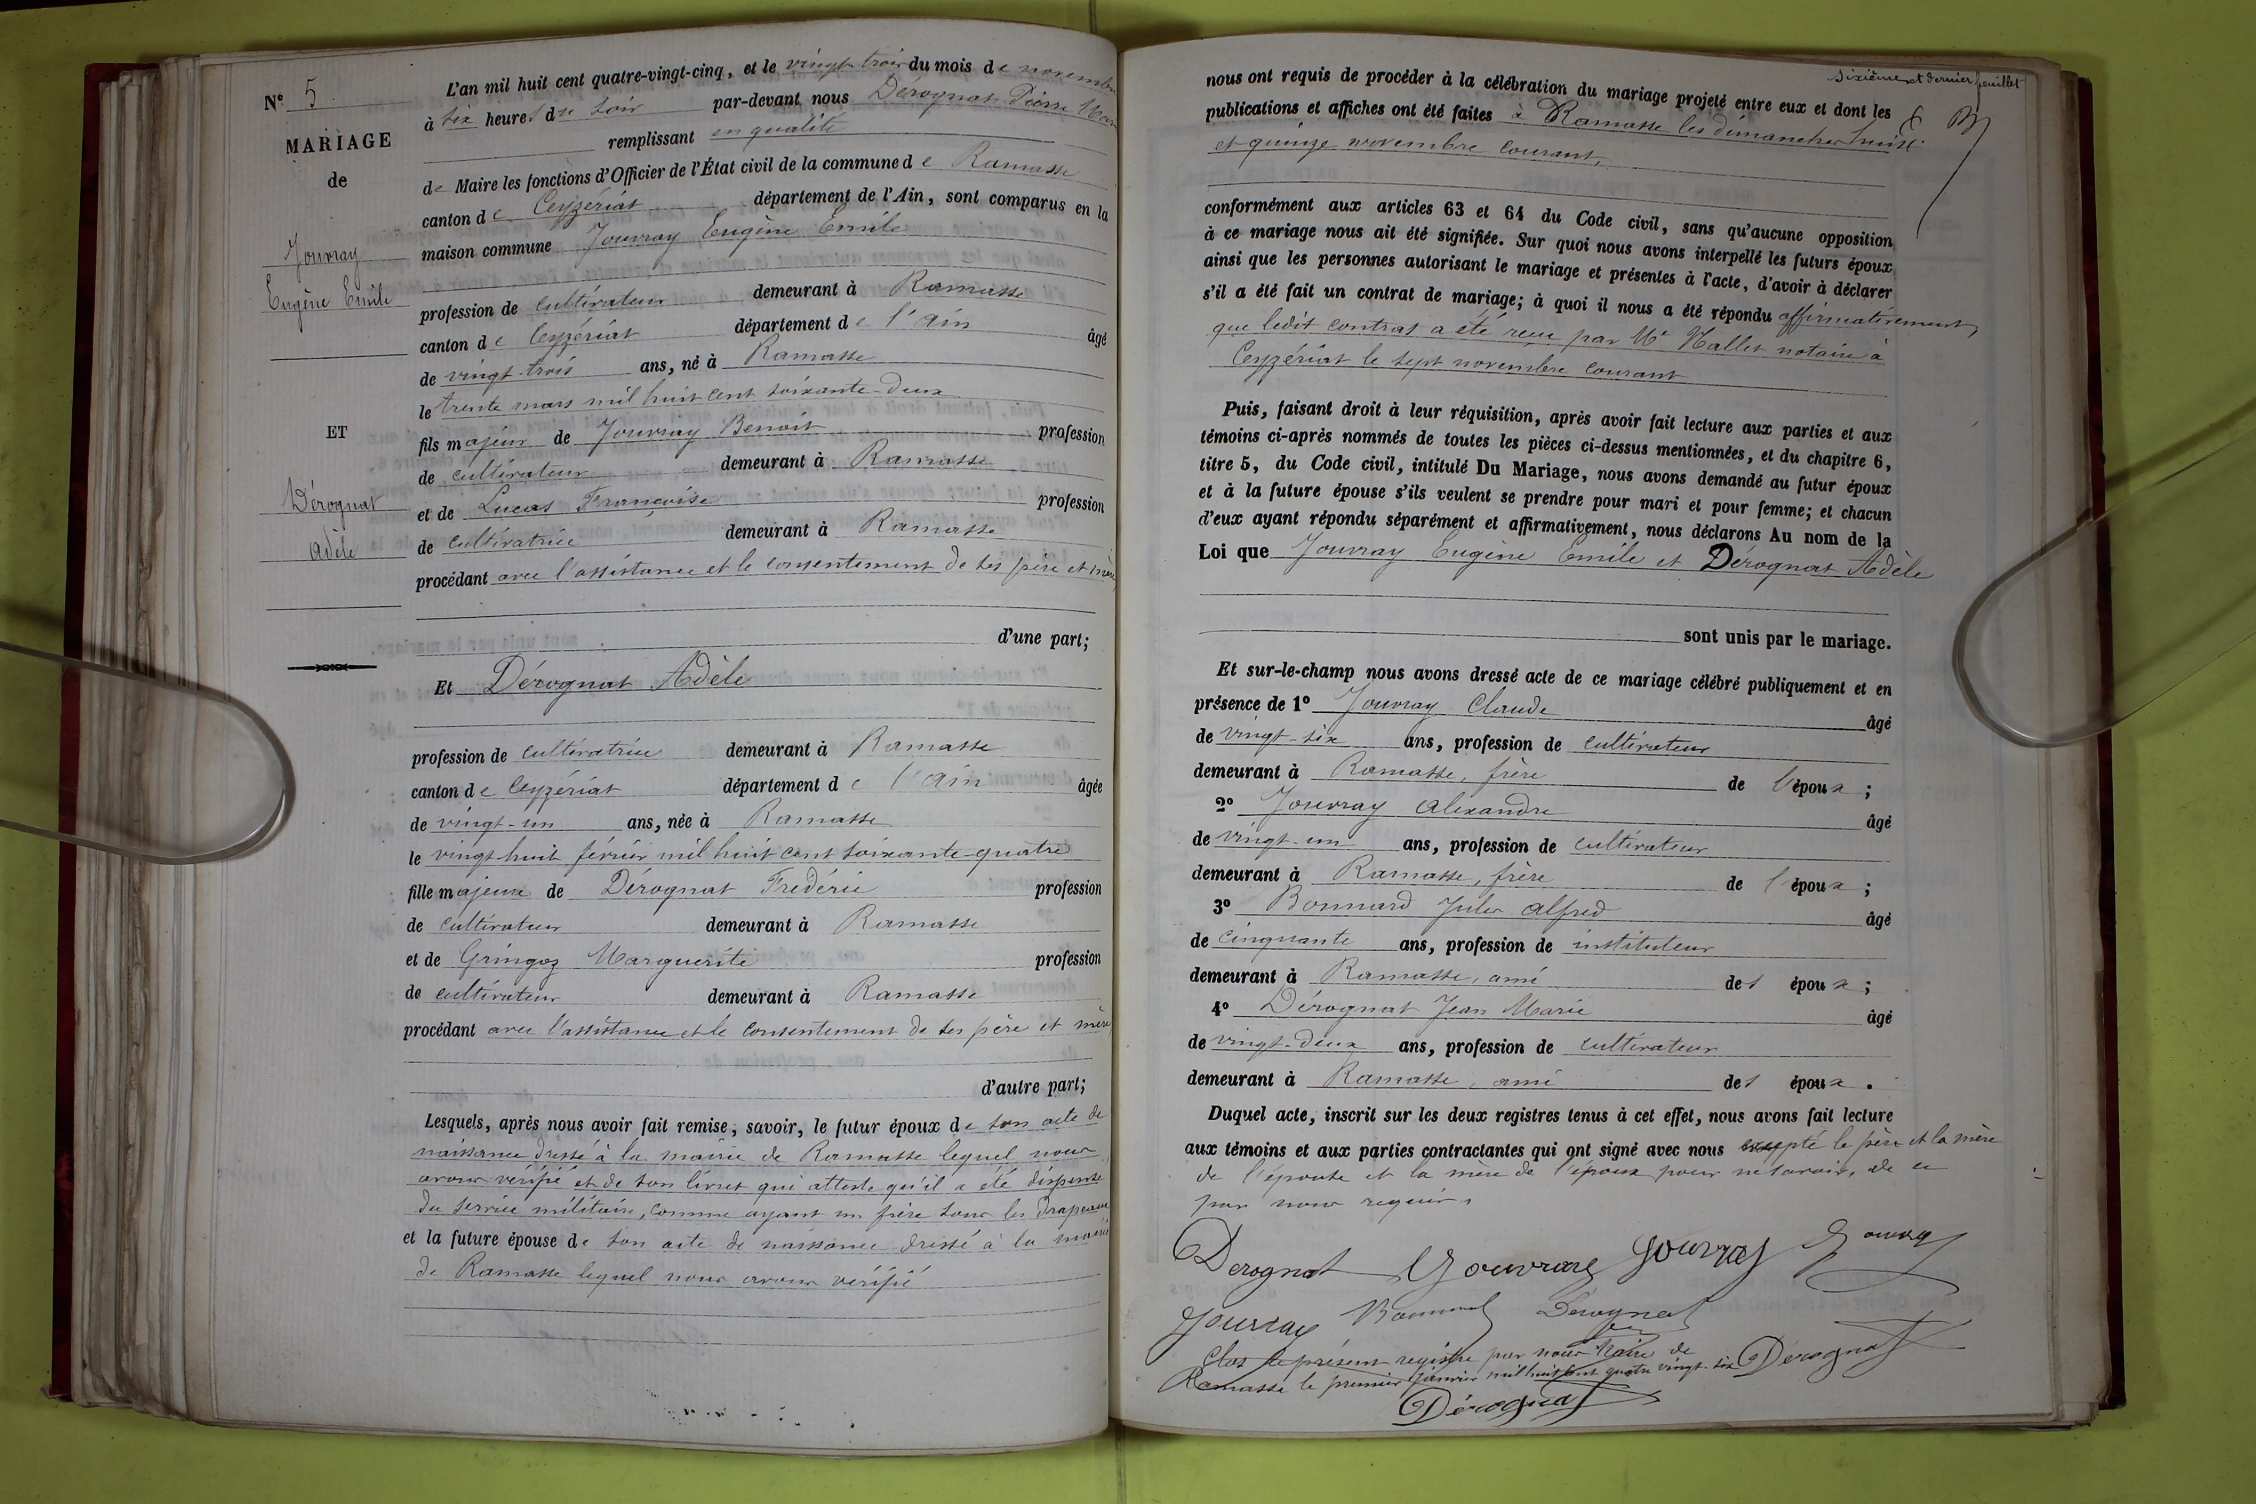 N° 5
MARIAGE
de
Jouvray
Eugène Emile
ET
Dérognat
Adèle
L'an mil huit cent quatre-vingt-cinq, et le vingt trois du mois de novembre
à six heures du soir par-devant nous Dérognat Pierre
remplissant en qualité
de Maire les fonctions d'Officier de l'État civil de la commune de Ramasse
canton de Ceyzériat département de l'Ain, sont comparus en la
maison commune Jouvray Eugène Emile
profession de cultivateur demeurant à Ramasse
canton de Ceyzériat département de l'Ain âgé
de vingt-trois ans, né à Ramasse
le trente mars mil huit cent soixante-deux
fils majeur de Jouvray Benoit profession
de cultivateur demeurant à Ramasse
et de Lucas Françoise profession
de cultivatrice demeurant à Ramasse
procédant avec l'assistance et le consentement de ses père et mère
d'une part;
Et Dérognat Adèle
profession de cultivatrice demeurant à Ramasse
canton de Ceyzériat département de l'Ain âgée
de vingt-un ans, née à Ramasse
le vingt huit février mil huit cent soixante-quatre
fille majeure de Dérognat Frédéric profession
de cultivateur demeurant à Ramasse
et de Gringoz Marguerite profession
de cultivateur demeurant à Ramasse
procédant avec l'assistance et le consentement de ses père et mère
d'autre part;
Lesquels, après nous avoir fait remise, savoir, le futur époux de son acte de
naissance dressé à la mairie de Ramasse lequel nous
avons vérifié et de son livret qui atteste qu'il a été dispensé
du service militaire, comme ayant un frère sous les drapeaux
et la future épouse de son acte de naissance dressé à la mairie
de Ramasse lequel nous avons vérifié
sixième et dernier feuillet
nous ont requis de procéder à la célébration du mariage projeté entre eux et dont les
publications et affiches ont été faites à Ramasse les dimanches huit
et quinze novembre courant,
conformément aux articles 63 et 64 du Code civil, sans qu'aucune opposition
à ce mariage nous ait été signifiée. Sur quoi nous avons interpellé les futurs époux
ainsi que les personnes autorisant le mariage et présentes à l'acte, d'avoir à déclarer
s'il a été fait un contrat de mariage; à quoi il nous a été répondu affirmativement,
que ledit contrat a été reçu par Me Hallet notaire à
Ceyzériat le sept novembre courant
Puis, faisant droit à leur réquisition, après avoir fait lecture aux parties et aux
témoins ci-après nommés de toutes les pièces ci-dessus mentionnées, et du chapitre 6,
titre 5, du Code civil, intitulé Du Mariage, nous avons demandé au futur époux
et à la future épouse s'ils veulent se prendre pour mari et pour femme; et chacun
d'eux ayant répondu séparément et affirmativement, nous déclarons Au nom de la
Loi que Jouvray Eugène Emile et Dérognat Adèle
sont unis par le mariage.
Et sur-le-champ nous avons dressé acte de ce mariage célébré publiquement et en
présence de 1° Jouvray Claude âgé
de vingt-six ans, profession de cultivateur
demeurant à Ramasse, frère de l'époux ;
2° Jouvray Alexandre âgé
de vingt-un ans, profession de cultivateur
demeurant à Ramasse, frère de l'époux ;
3° Bonnard Jules Alfred âgé
de cinquante ans, profession de instituteur
demeurant à Ramasse, ami des époux ;
4° Dérognat Jean Marie âgé
de vingt-deux ans, profession de cultivateur
demeurant à Ramasse, ami des époux .
Duquel acte, inscrit sur les deux registres tenus à cet effet, nous avons fait lecture
aux témoins et aux parties contractantes qui ont signé avec nous excepté le père et la mère
de l'épouse et la mère de l'époux pour ne savoir, de ce
par nous requis.
Dérognat Jouvray Jouvray Jouvray
Jouvray Bonnard Dérognat
Clos le présent registre par nous Maire de
Ramasse le premier janvier mil huit cent quatre vingt-six Dérognat
Dérognat